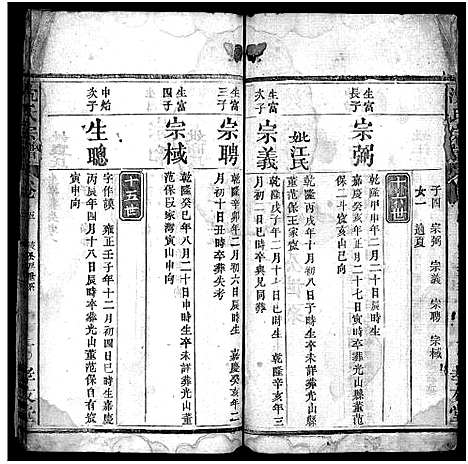 子四 宗弼 宗義 宗聘 宗棫
女一 適夏
孝友堂
生富長子
宗弼
乾隆甲申年二月二十日辰時生
嘉慶癸亥年正月二十七日寅時卒葬光山縣董范
保二斗崁亥山巳向
妣江氏
乾隆丙戌年十月
董范保王家崁
生富次子
宗義
乾隆戊子年二月十二日巳時生 乾隆辛亥年三
月初二日辰時卒與兄同葬
生富三子
宗聘
乾隆辛卯年二月初六日辰時生 嘉慶癸亥年二
月初十日丑時卒葬失考
生富四子
宗棫
乾隆癸巳年八月二十日辰時生卒未詳葬光山董
范保段家灣寅山申向
十五世
申始次子
生聰
字作謨 雍正壬子年十二月初四日巳時生嘉慶
丙辰年四月十八日辰時卒葬光山董范保自有崁
寅申向
孝友堂